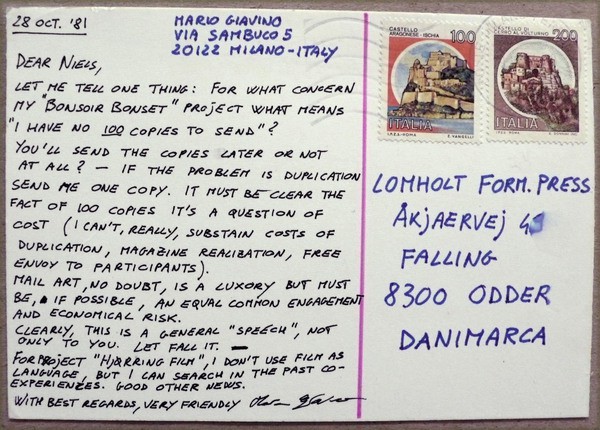 28 OCT. '81
MARIO GIAVINO
VIA SAMBUCO 5
20122 MILANO-ITALY
DEAR NIELS,
LET ME TELL ONE THING: FOR WHAT CONCERN
MY "BONSOIR BONSET" PROJECT WHAT MEANS
"I HAVE NO 100 COPIES TO SEND"?
YOU'LL SEND THE COPIES LATER OR NOT
AT ALL? — IF THE PROBLEM IS DUPLICATION
SEND ME ONE COPY. IT MUST BE CLEAR THE
FACT OF 100 COPIES IT'S A QUESTION OF
COST (I CAN'T, REALLY, SUBSTAIN COSTS OF
DUPLICATION, MAGAZINE REALIZATION, FREE
ENVOY TO PARTICIPANTS).
MAIL ART, NO DOUBT, IS A LUXORY BUT MUST
BE, IF POSSIBLE, AN EQUAL COMMON ENGAGEMENT
AND ECONOMICAL RISK.
CLEARLY, THIS IS A GENERAL "SPEECH", NOT
ONLY TO YOU. LET FALL IT. —
FOR PROJECT "HJØRRING FILM", I DON'T USE FILM AS
LANGUAGE, BUT I CAN SEARCH IN THE PAST CO-
EXPERIENZES. GOOD OTHER NEWS.
WITH BEST REGARDS, VERY FRIENDLY
CASTELLO
ARAGONESE - ISCHIA
100
ITALIA
I.P.Z.S. - ROMA
E. VANGELLI
CASTELLO DI
CERRO AL VOLTURNO
200
ITALIA
I.P.Z.S. ROMA
LOMHOLT FORM. PRESS
ÅKJAERVEJ
FALLING
8300 ODDER
DANIMARCA